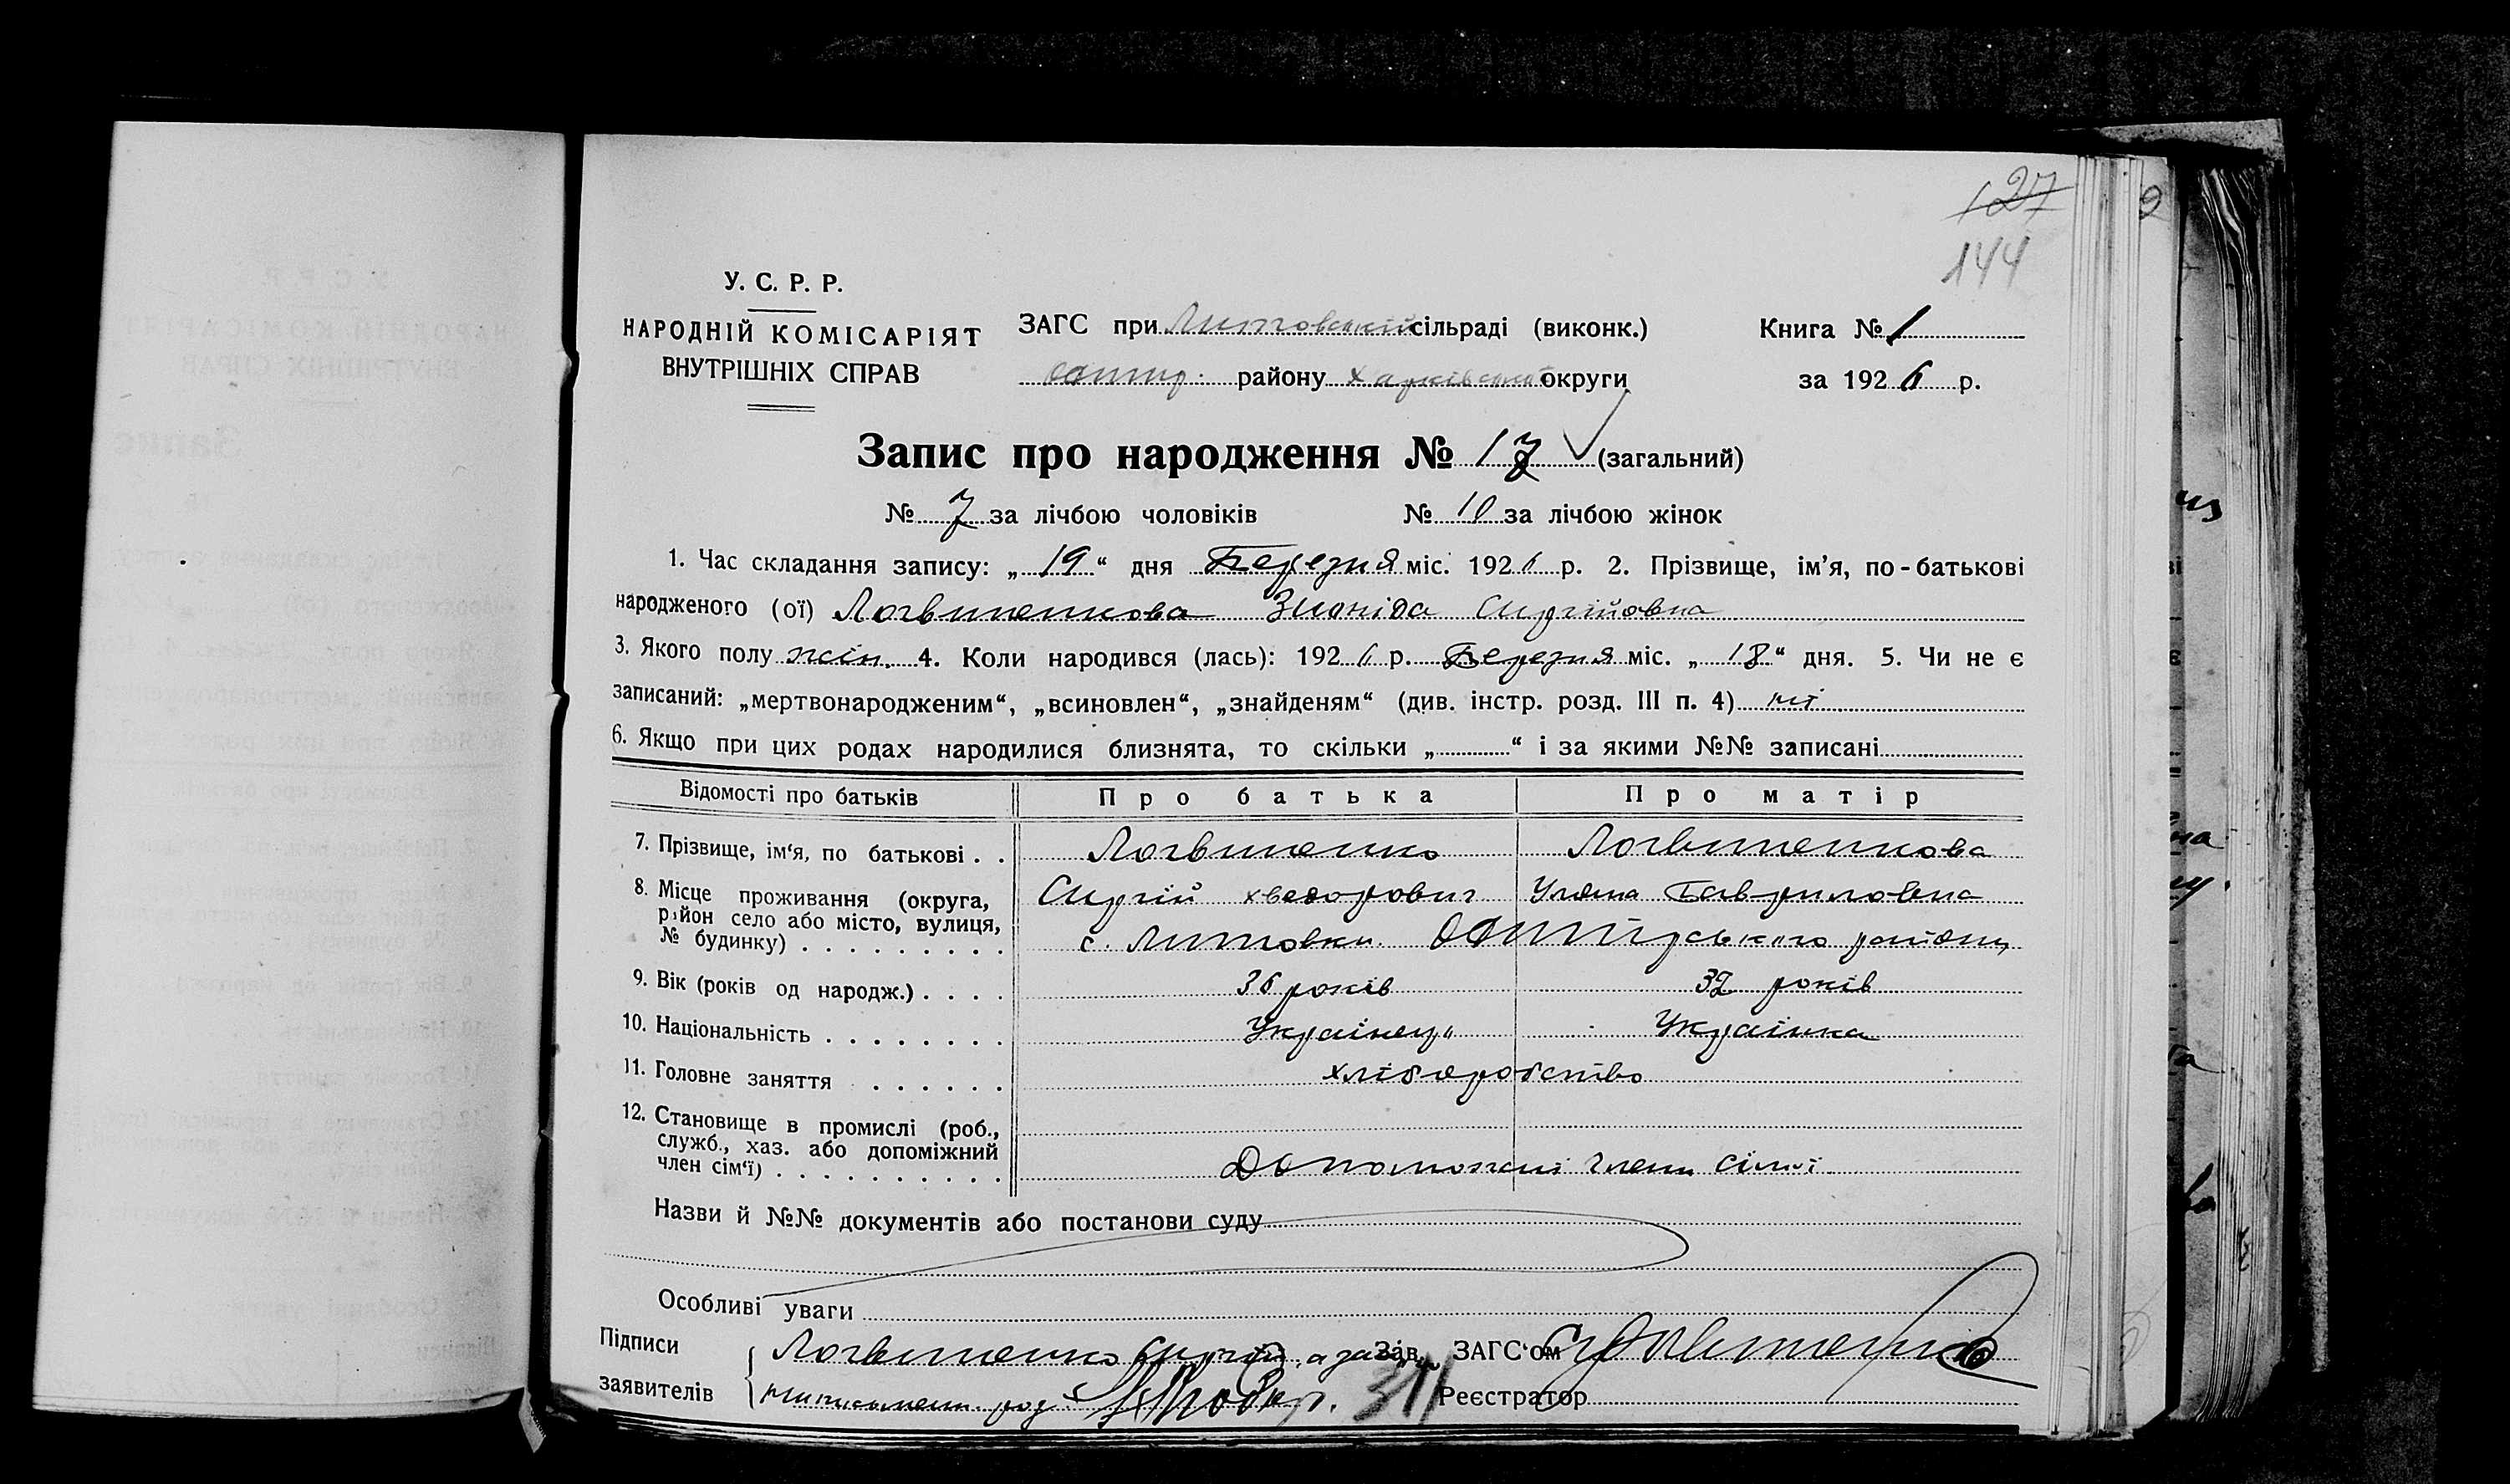 127
144
У. С. Р. Р.
НАРОДНІЙ КОМІСАРІЯТ
ВНУТРІШНІХ СПРАВ
ЗАГС при Литовській сільраді (виконк.)
району Харківської округи
Книга № 1
за 1926 р.
Запис про народження № 17 (загальний)
№ 7 за лічбою чоловіків № 10 за лічбою жінок
1. Час складання запису: „ 19 “ дня Березня міс. 1926 р. 2. Прізвище, ім’я, по-батькові
народженого (ої) Логвиненкова Зионіда Сиргійовна
3. Якого полу жін. 4. Коли народився (лась): 1926 р. Березня міс. „ 18 “ дня. 5. Чи не є
записаний: „мертвонародженим“, „всиновлен“, „знайденям“ (див. інстр. розд. III п. 4) ні
6. Якщо при цих родах народилися близнята, то скільки „ “ і за якими №№ записані
Відомості про батьків Про батька Про матір
7. Прізвище, ім‘я, по батькові . . Логвиненко Логвиненкова
8. Місце проживання (округа, Сиргій Хведорович Уляна Гавриловна
район село або місто, вулиця,
№ будинку) . . . . . . . . . с. Литовки району
9. Вік (років од народж.) . . . . 36 років 32 років
10. Національність . . . . . . . . Українець Українка
11. Головне заняття . . . . . . хліборобство
12. Становище в промислі (роб.,
служб., хаз. або допоміжний
член сім‘ї) . . . . . . . . . . Допоможні члени сімї
Назви й №№ документів або постанови суду
Особливі уваги
Підписи Логвиненко Сиргій, а за Зав. ЗАГС‘ом
заявителів неписьмен. роз. Реєстратор